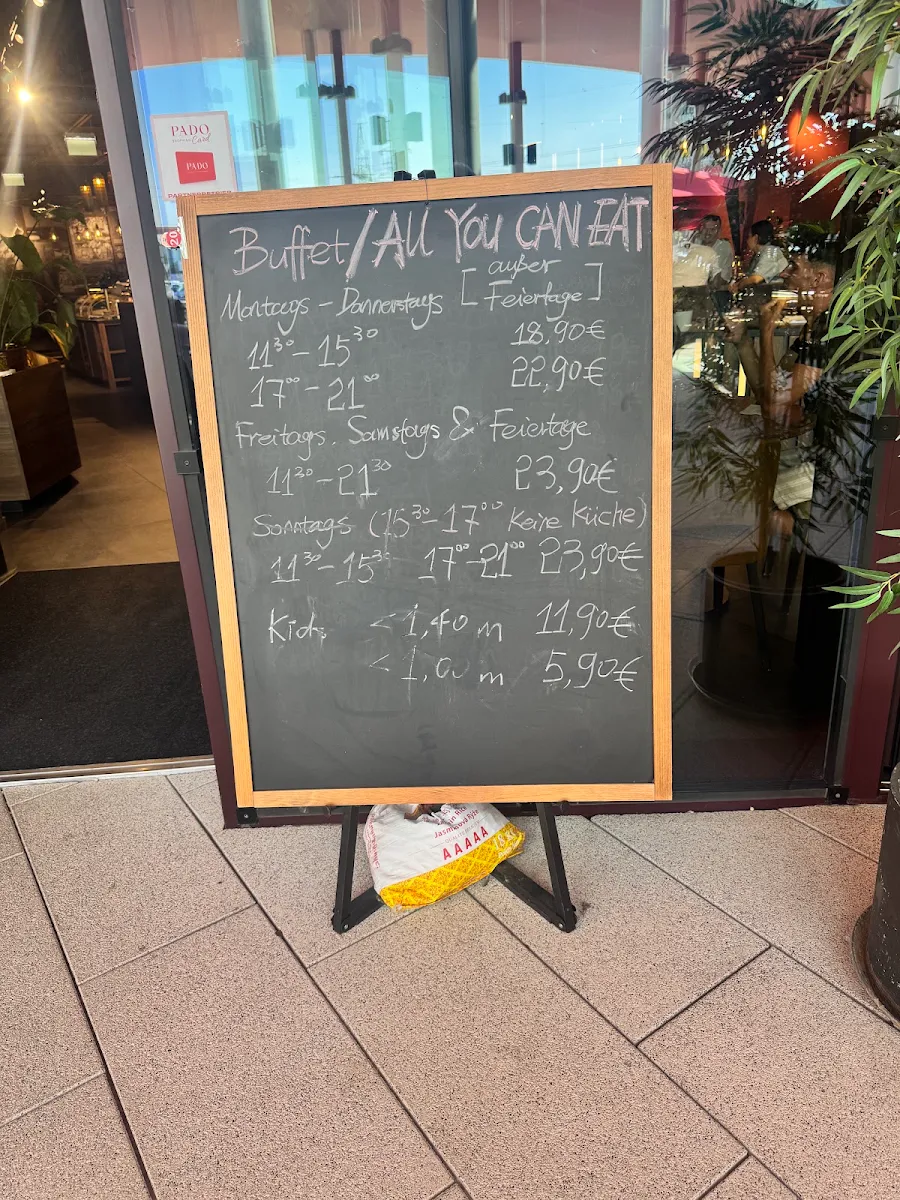 PADO
Card
PADO
Buffet / All YOU CAN EAT
Montags - Donnerstags [außer Feiertage]
11³⁰ - 15³⁰ 18,90€
17⁰⁰ - 21⁰⁰ 22,90€
Freitags, Samstags & Feiertage
11³⁰ - 21³⁰ 23,90€
Sonntags (15³⁰ - 17⁰⁰ Keine Küche)
11³⁰ - 15³⁰ 17⁰⁰ - 21⁰⁰ 23,90€
Kids < 1,40 m 11,90€
< 1,00 m 5,90€
AAAAA